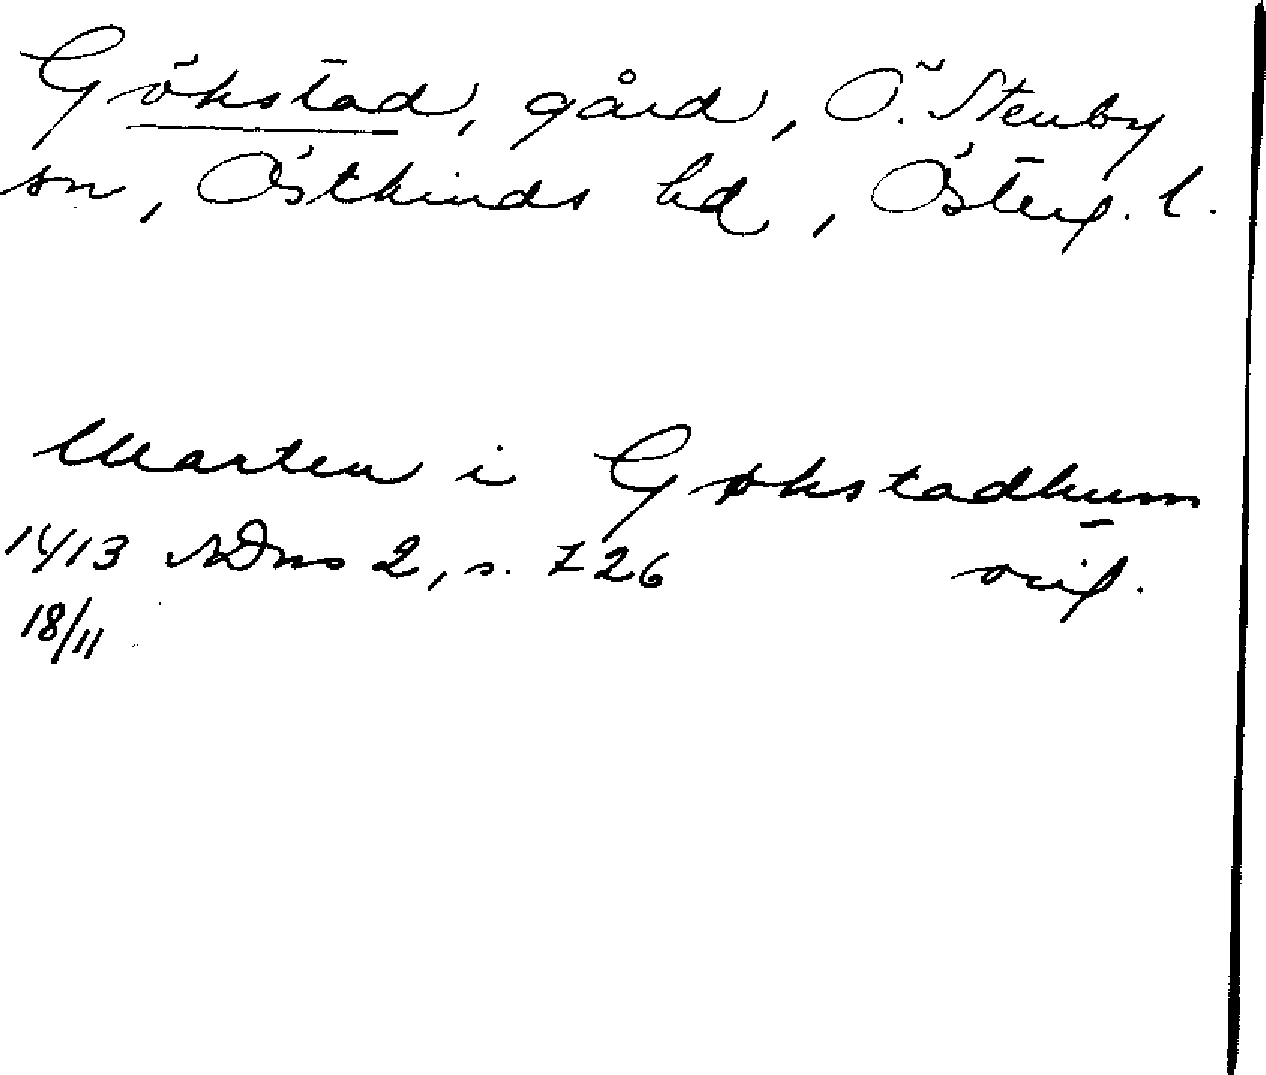 Gökstad, gård, Ö. Stenby
sn, Östkinds hd, Österg. l.
Marten i Gøkstadhum
1413 SDns 2, s. 726 orig.
18/11